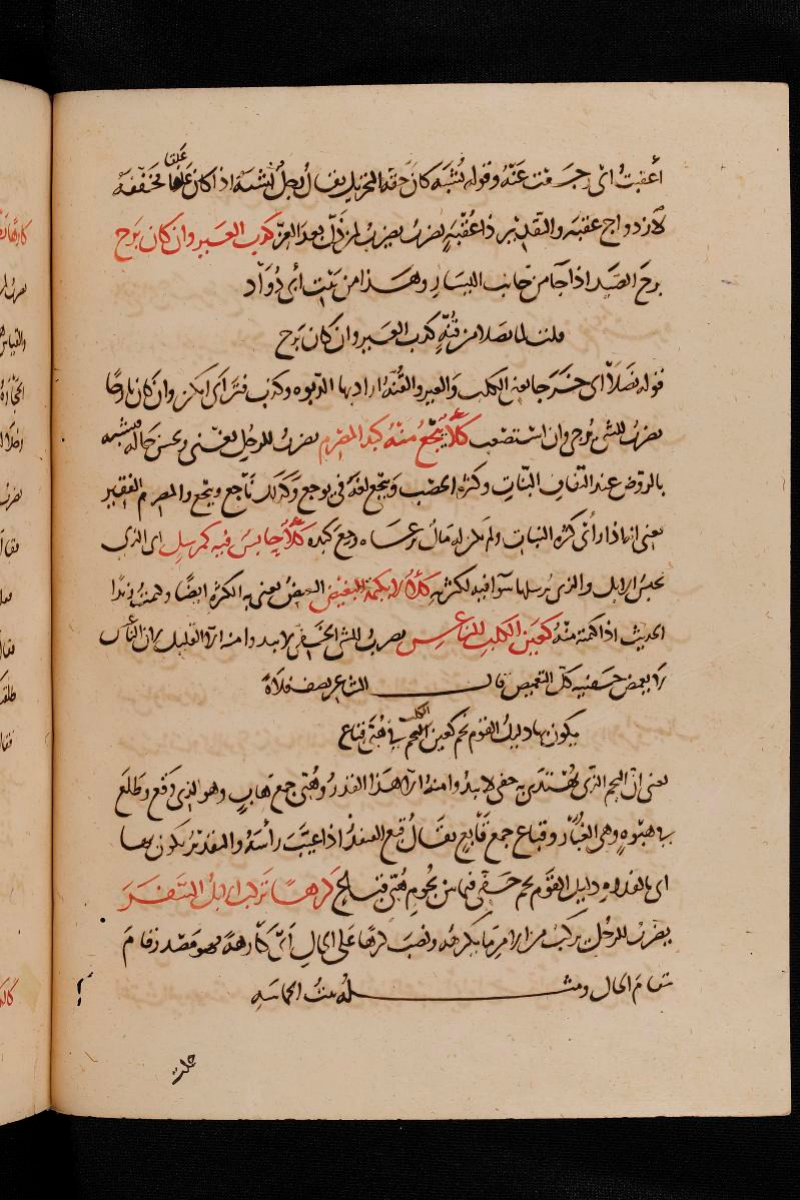 أعقبت أى رجـ عنه وقوله نشبه كان حقه التحريك يقال رجل نشبة اذا كان علقا فخففه
لازدواج عقبه والتقدير ذا عقبه يضرب لمن ذل بعد العز كذب العير وان كان برح
برح الصيد اذا جا من جانب اليسار وهذا من بيت أبى دؤاد
قلت لما نصلا من قنة كذب العير وان كان برح
قوله نصلا اى خرجا يعنى الكلب والعير والقنة اراد بها الربوه وكذب فتر اى امكن وان كان بارحا
يضرب للشى يرجى وان استصعب كلأ ييجع منه كبد المصرم يضرب للرجل يغنى وحسن حاله
بالروض عند التفاف النبات وكثرة الخصب وييجع لغة فى يوجع وكذلك ياجع وييجع والمصرم الفقير
يعنى انه اذا رأى كثرة النبات ولم يكن له مال يرعـاه وجع كبده كلأ حابس فيه كمرسل اى الذى
يحبس الابل والذى يرسلها سوا فيه لكثرته كلأ لا يكتمه البغيض البغيض يعنى به الكثرة ايضا وكتمت زيدا
الحديث اذا كتمته منه كعين الكلب الناعس يضرب للشى الخفى لا يبدوا منه الا القليل لان الناعس
لا يغمض جفنيه كل التغميض قال الشاعر يصف فلاة
يكون بها دليل القوم نجم كعين الكلب فى هبى قباع
يعنى ان النجم الذى يهتدى به خفى لا يبدوا منه الا هذا القدر وهبى جمع هاب وهو الذى وقع وطلع
فى هبوه وهى الغبار وقباع جمع قابع يقال قبع القنفذ اذا غيب رأسه والتقدير يكون بها
اى بالفلاة دليل القوم نجم خفى فيما بين نجوم هبى قباع كرها تركب الابل السفر
يضرب للرجل يركب من الامر ما يكرهه ونصب كرها على الحال اى كارهة فهو مصدر قام
مقام الحال ومثـــله بيت الحماسه
حملت